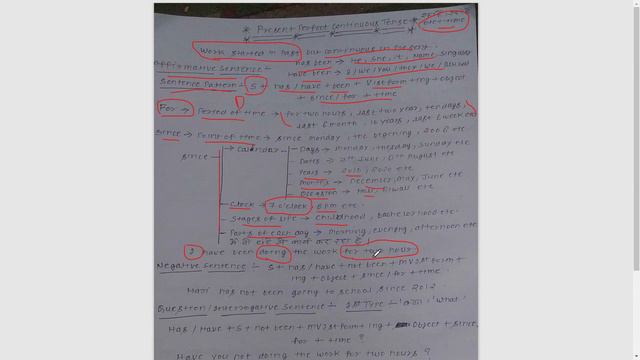 * Present Perfect Continuous Tense *
Work started in Past but continuous in present.
has been → He, She, it, Name, Singular
Affirmative Sentence - have been → I/We/You/They/
Sentence Pattern - S + has/have + been + V1st form + ing + object
+ since/for + time
For → Period of time → for two hours, last two year, ten days,
last 6 month, 10 years, last 6 week etc
Since → Point of time → since monday, the begening, 2006 etc
Since
→ Calendar
Days → monday, tuesday, sunday etc
Dates → June, August etc
Years → 2010, 2020 etc
Months → December, May, June etc
Occasion → Holi, Diwali etc
Clock → 7 o'clock, 8 pm etc
Stages of life → childhood, bachelorhood etc
Parts of each day → morning, evening, afternoon etc
I have been doing the work for two hour
Negative Sentence :- S + has/have + not been + MV1st form +
ing + object + since/for + time.
Hari has not been going to school since 2012.
Question/Interrogative Sentence - 1st Type - 'क्या' 'What'
Has/Have + S + not been + MV1st form + ing + object + since,
for + time ?
Have you not doing the work for two hours ?